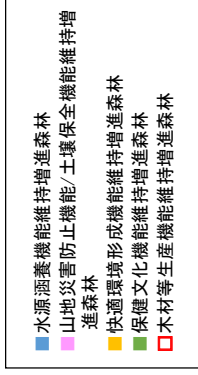 水源涵養機能維持増進森林
山地災害防止機能/土壌保全機能維持増
進森林
快適環境形成機能維持増進森林
保健文化機能維持増進森林
木材等生産機能維持増進森林